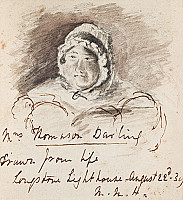 Mrs Thomason Darling
Drawn from life
Longstone Lighthouse - August 22d. 39
H. N. H.